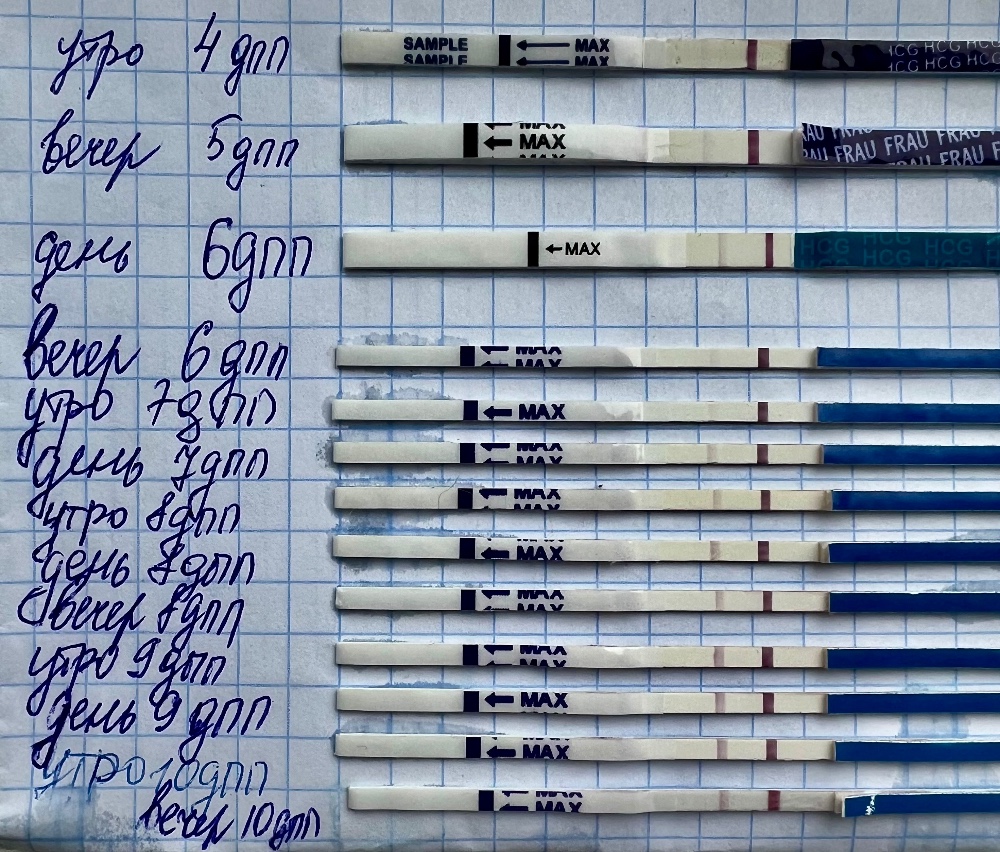 утро 4 дпп SAMPLE MAX HCG HCG HCG
SAMPLE MAX HCG HCG HCG
вечер 5дпп MAX FRAU FRAU FRAU FRAU
FRAU FRAU FRAU
день 6дпп MAX HCG HCG HCG HCG
HCG HCG HCG HCG
вечер 6 дпп MAX
MAX
утро 7дпп MAX
день 7дпп MAX
MAX
утро 8дпп MAX
день 8дпп MAX
вечер 8дпп MAX
MAX
утро 9дпп MAX
день 9дпп MAX
утро 10дпп MAX
вечер 10дпп MAX
MAX